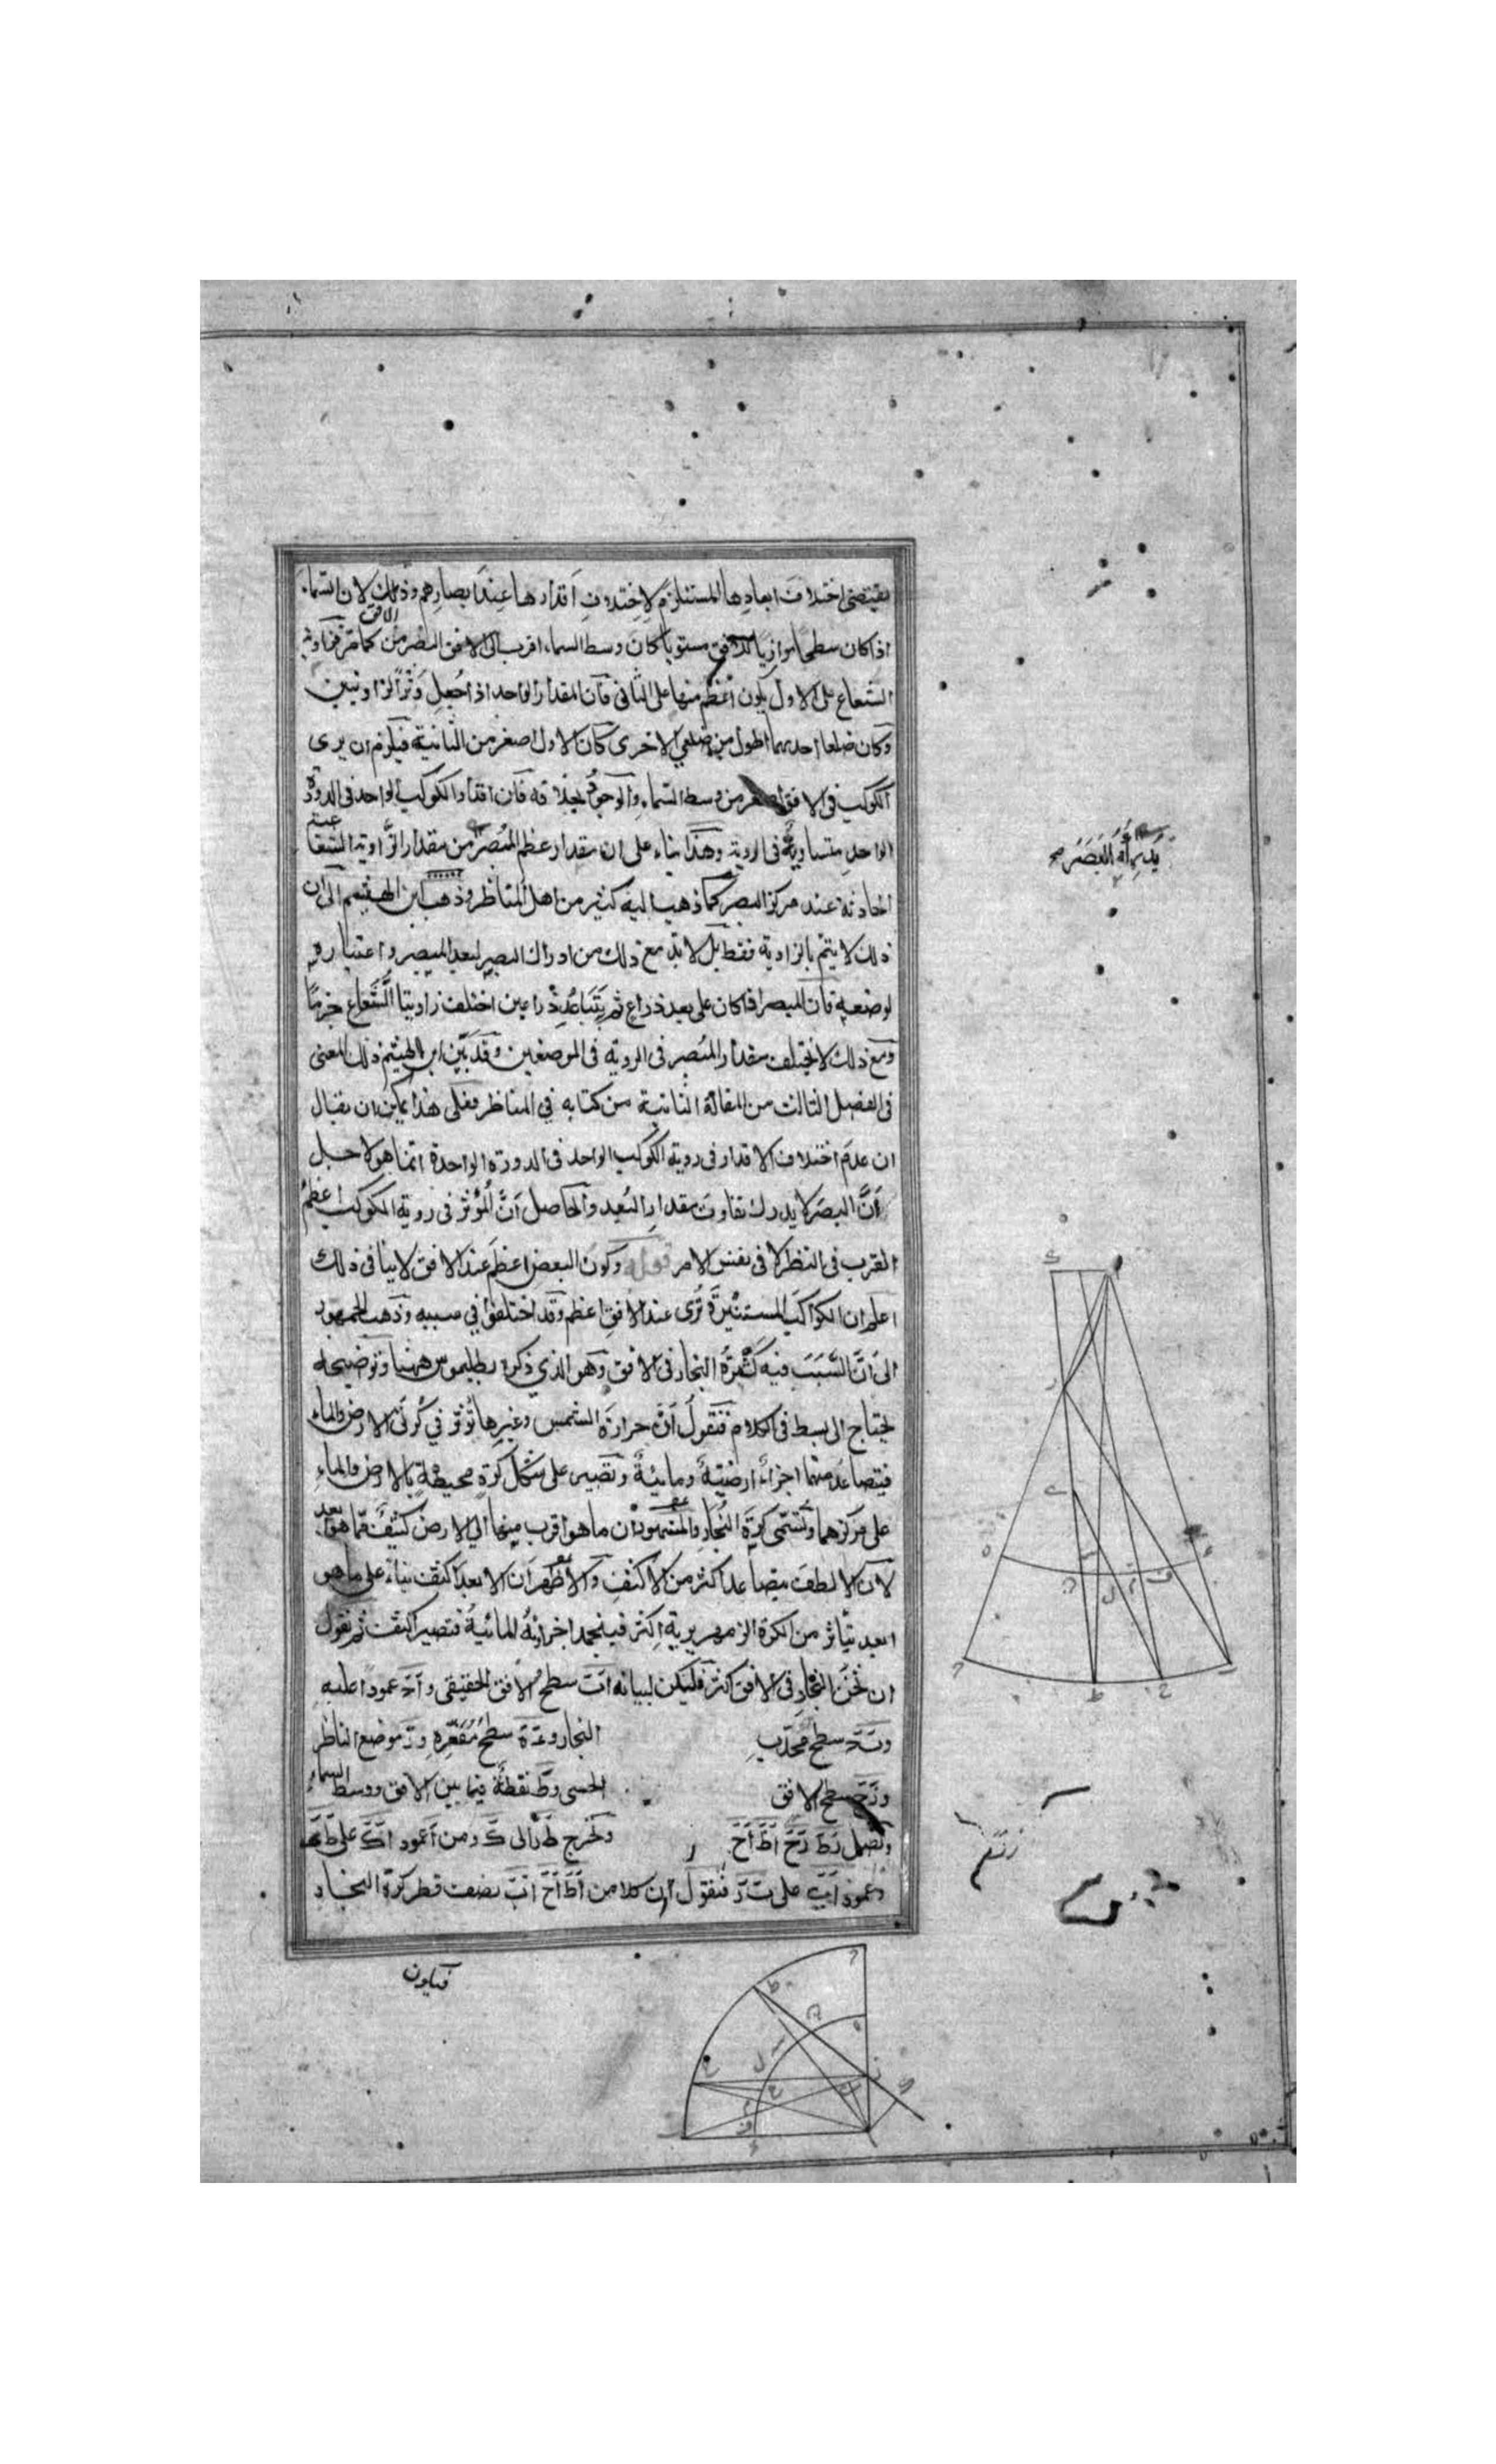 يقتضى اختلاف ابعادها المستلزم لاختلاف اقدارها عند ابصارهم وذلك لان السماء
اذا كان سطحا موازيا للافق مستويا كان وسط السماء اقرب الى المبصر من الافق كما مر فزاوية
الشعاع على الاول يكون اعظم منها على الثانى فان المقدار الواحد اذا جعل وترا لزاويتين
وكان ضلعا احديهما اطول من ضلعى الاخرى كان الاول اصغر من الثانية فيلزم ان يرى
الكوكب فى الافق اصغر من وسط السماء والوجود بخلافه فان اقدار الكوكب الواحد فى الدورة
الواحدة متساوية فى الروية وهذا بناء على ان مقدار عظم المبصر من مقدار الزاوية الشعاعية
الحادثة عند مركز البصر كما ذهب اليه كثير من اهل المناظر وذهب ابن الهيثم الى ان
ذلك لا يتم بالزاوية فقط بل لابد مع ذلك من ادراك البصر لبعد المبصر واعتباره
لوضعه فان المبصر اذا كان على بعد ذراع ثم يتباعد ذراعين اختلف زاويتا الشعاع جزما
ومع ذلك لا يختلف مقدار المبصر فى الروية فى الموضعين وقد بين ابن الهيثم ذلك المعنى
فى الفصل الثالث من المقالة الثانية من كتابه فى المناظر فعلى هذا يمكن ان يقال
ان عدم اختلاف الاقدار فى روية الكوكب الواحد فى الدورة الواحدة انما هو لاجل
ان البصر لا يدرك تفاوت مقدار البعد والحاصل ان المؤثر فى روية الكوكب اعظم
القرب فى النظر لا فى نفس الامر قوله وكون البعض اعظم عند الافق لا ينافى ذلك
اعلم ان الكواكب المستنيرة ترى عند الافق اعظم وقد اختلفوا فى سببه وذهب الجمهور
الى ان السبب فيه كثرة البخار فى الافق وهو الذي ذكره بطليموس ههنا وتوضيحه
يحتاج الى بسط فى الكلام فنقول ان حرارة الشمس وغيرها تؤثر في كرتى الارض والماء
فيتصاعد منهما اجزاء ارضية ومائية وتصير على شكل كرة محيطة بالارض والماء
على مركزهما وتسمى كرة البخار والمشهور ان ما هو اقرب منها الى الارض كثف مما هو ابعد
لان الالطف يتصاعد اكثر من الاكثف والاظهر ان الابعد اكثف بناء على ما هو
ابعد يتاثر من الكرة الزمهريرية اكثر فينجمد اجزاؤه المائية فتصير اكثف ثم نقول
ان ثخن البخار فى الافق اكثر فليكن لبيانه اب سطح الافق الحقيقى و اح عمودا عليه
و ب ح سطح محدب البخار و ء ه سطح مقعره و ز موضع الناظر
و زح سطح الافق الحسى و ط نقطة فيما بين الافق ووسط السماء
ونصل زط زح اط اح ونخرج ط ز الى ك ومن ا عمود اك على ط ك
فنقول ان كلا من اط اح اب نصف قطر كرة البخار
فيكون